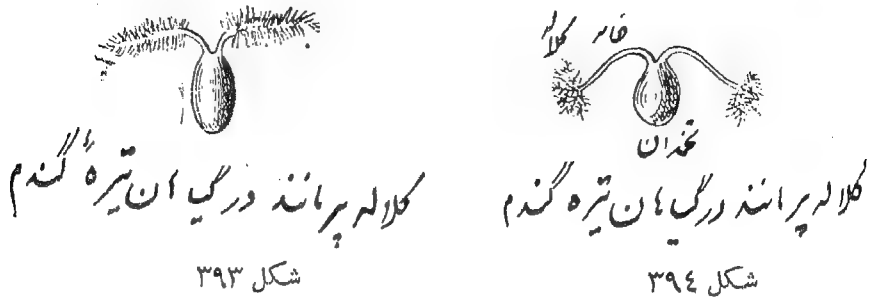 کلاله
خامه
تخمدان
کلاله پر مانند در گیاهان تیره گندم
شکل ۳۹٤
کلاله پر مانند در گیاهان تیرهٔ گندم
شکل ۳۹۳